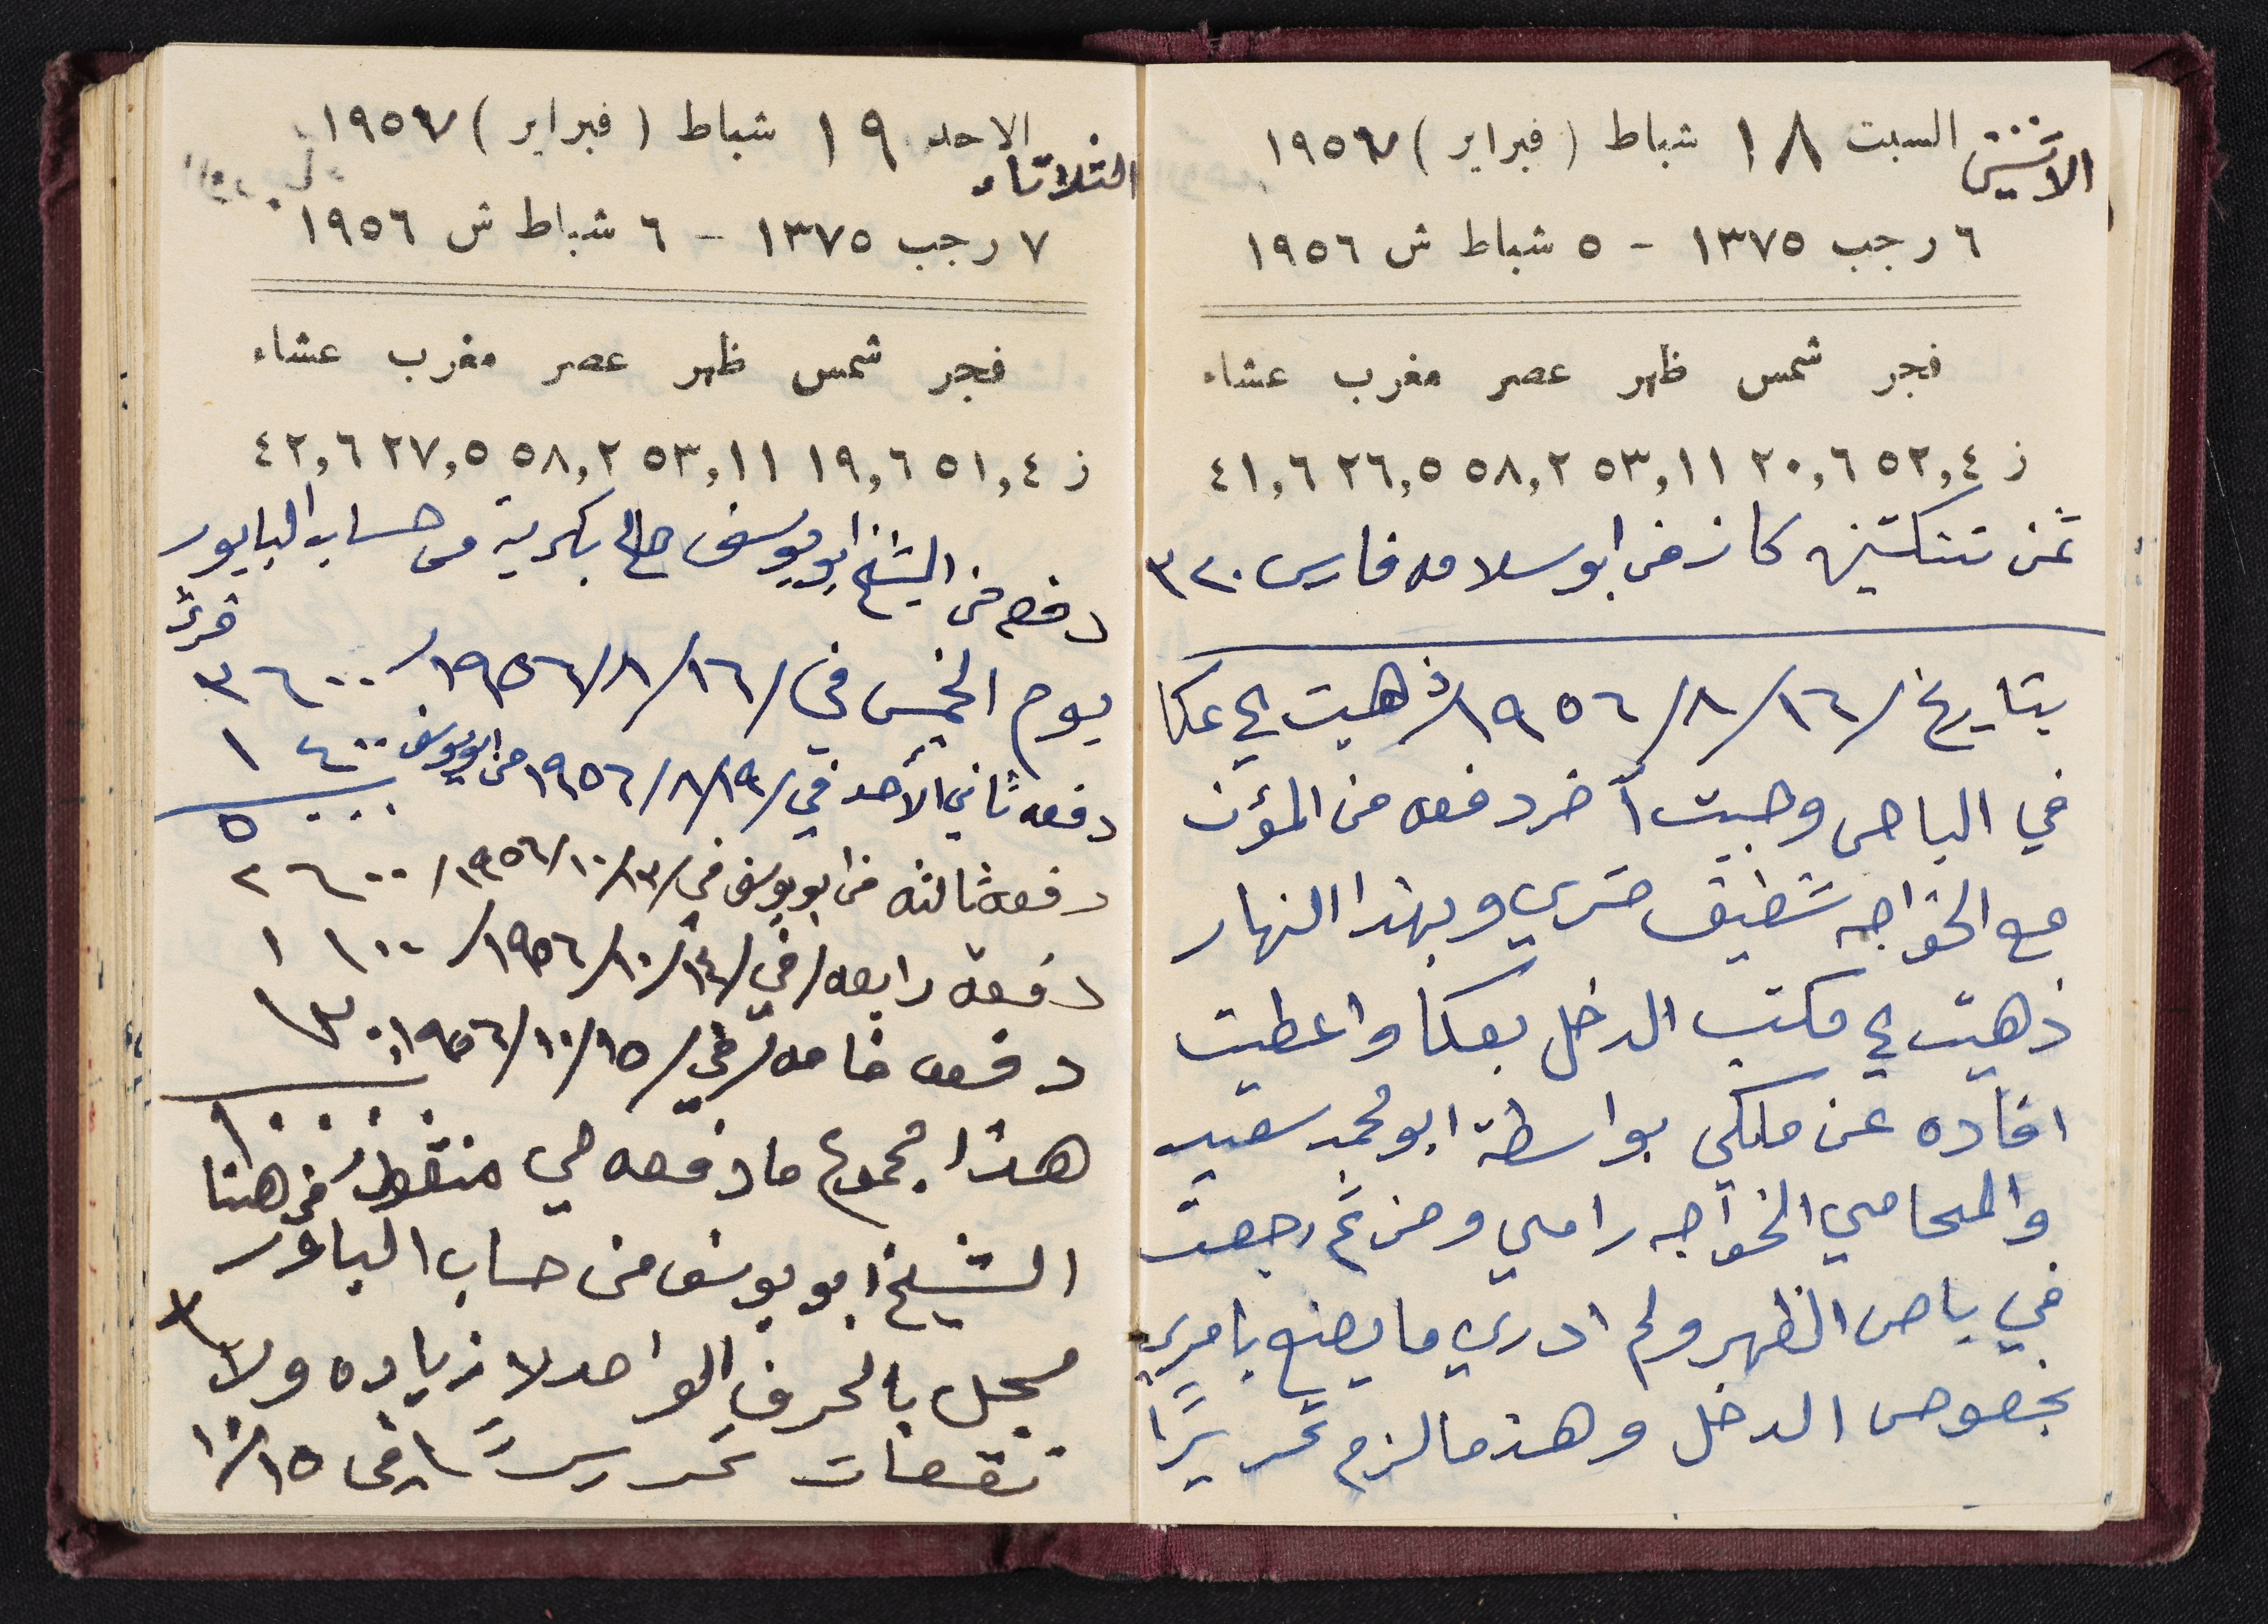 السبت ١٨ شباط (فبراير) ١٩٥٧
الاثنين
٦ رجب ١٣٧٥ - ٥ شباط ش ١٩٥٦
فجر شمس ظهر عصر مغرب عشاء
ز ٥٢,٤ ٢٠,٦ ٥٣,١١ ٥٨,٢ ٢٦,٥ ٤١,٦
ثمن تنكتين كاز من ابو سلامه فارس ٣٢٠
بتاريخ /١٦/٨/١٩٥٦/ ذهبت الى عكا
في الباص وجبت آخر دفعه من المؤن
مع الخواجه شفيق خري وبهذا النهار
ذهبت الى مكتب الدخل بعكا واعطيت
افاده عن ملكي بواسطة ابو محمد سعيد
والمحامي الخواجه رامي ومن ثم رجعت
في باص الظهر ولم ادري ما يصنع بامري
بخصوص الدخل وهذ ما لزم تحريرًا
الاحد ١٩ شباط (فبراير) ١٩٥٧
الثلاثاء
٧ رجب ١٣٧٥ - ٦ شباط ش ١٩٥٦
فجر شمس ظهر عصر مغرب عشاء
ز ٥١,٤ ١٩,٦ ٥٣,١١ ٥٨,٢ ٢٧,٥ ٤٢,٦
دفعه من الشيخ ابو يوسف صالح بكريه من حساب البابور
يوم الخميس في /١٦/٨/١٩٥٦/ ٣٦٠٠
دفعه ثاني الأحد في /١٩/٨/١٩٥٦ من ابو يوسف ١٤٠٠
٥٠٠٠
دفعه ثالثه من ابو يوسف في /١٣/١٠/١٩٥٦/ ٢٦٠٠
دفعة رابعه/في /١٤/١٠/١٩٥٦/ ١١٠٠
دفعه خامسه/في /١٥/١٠/١٩٥٦
١٠٠٠٠
هذا مجموع ما دفعه لي منقوط من هنا
الشيخ ابو يوسف من حساب البابور
مسجل بالحرف الواحد لا زياده ولا
نقصات تحريرًا في ١٥/١٠